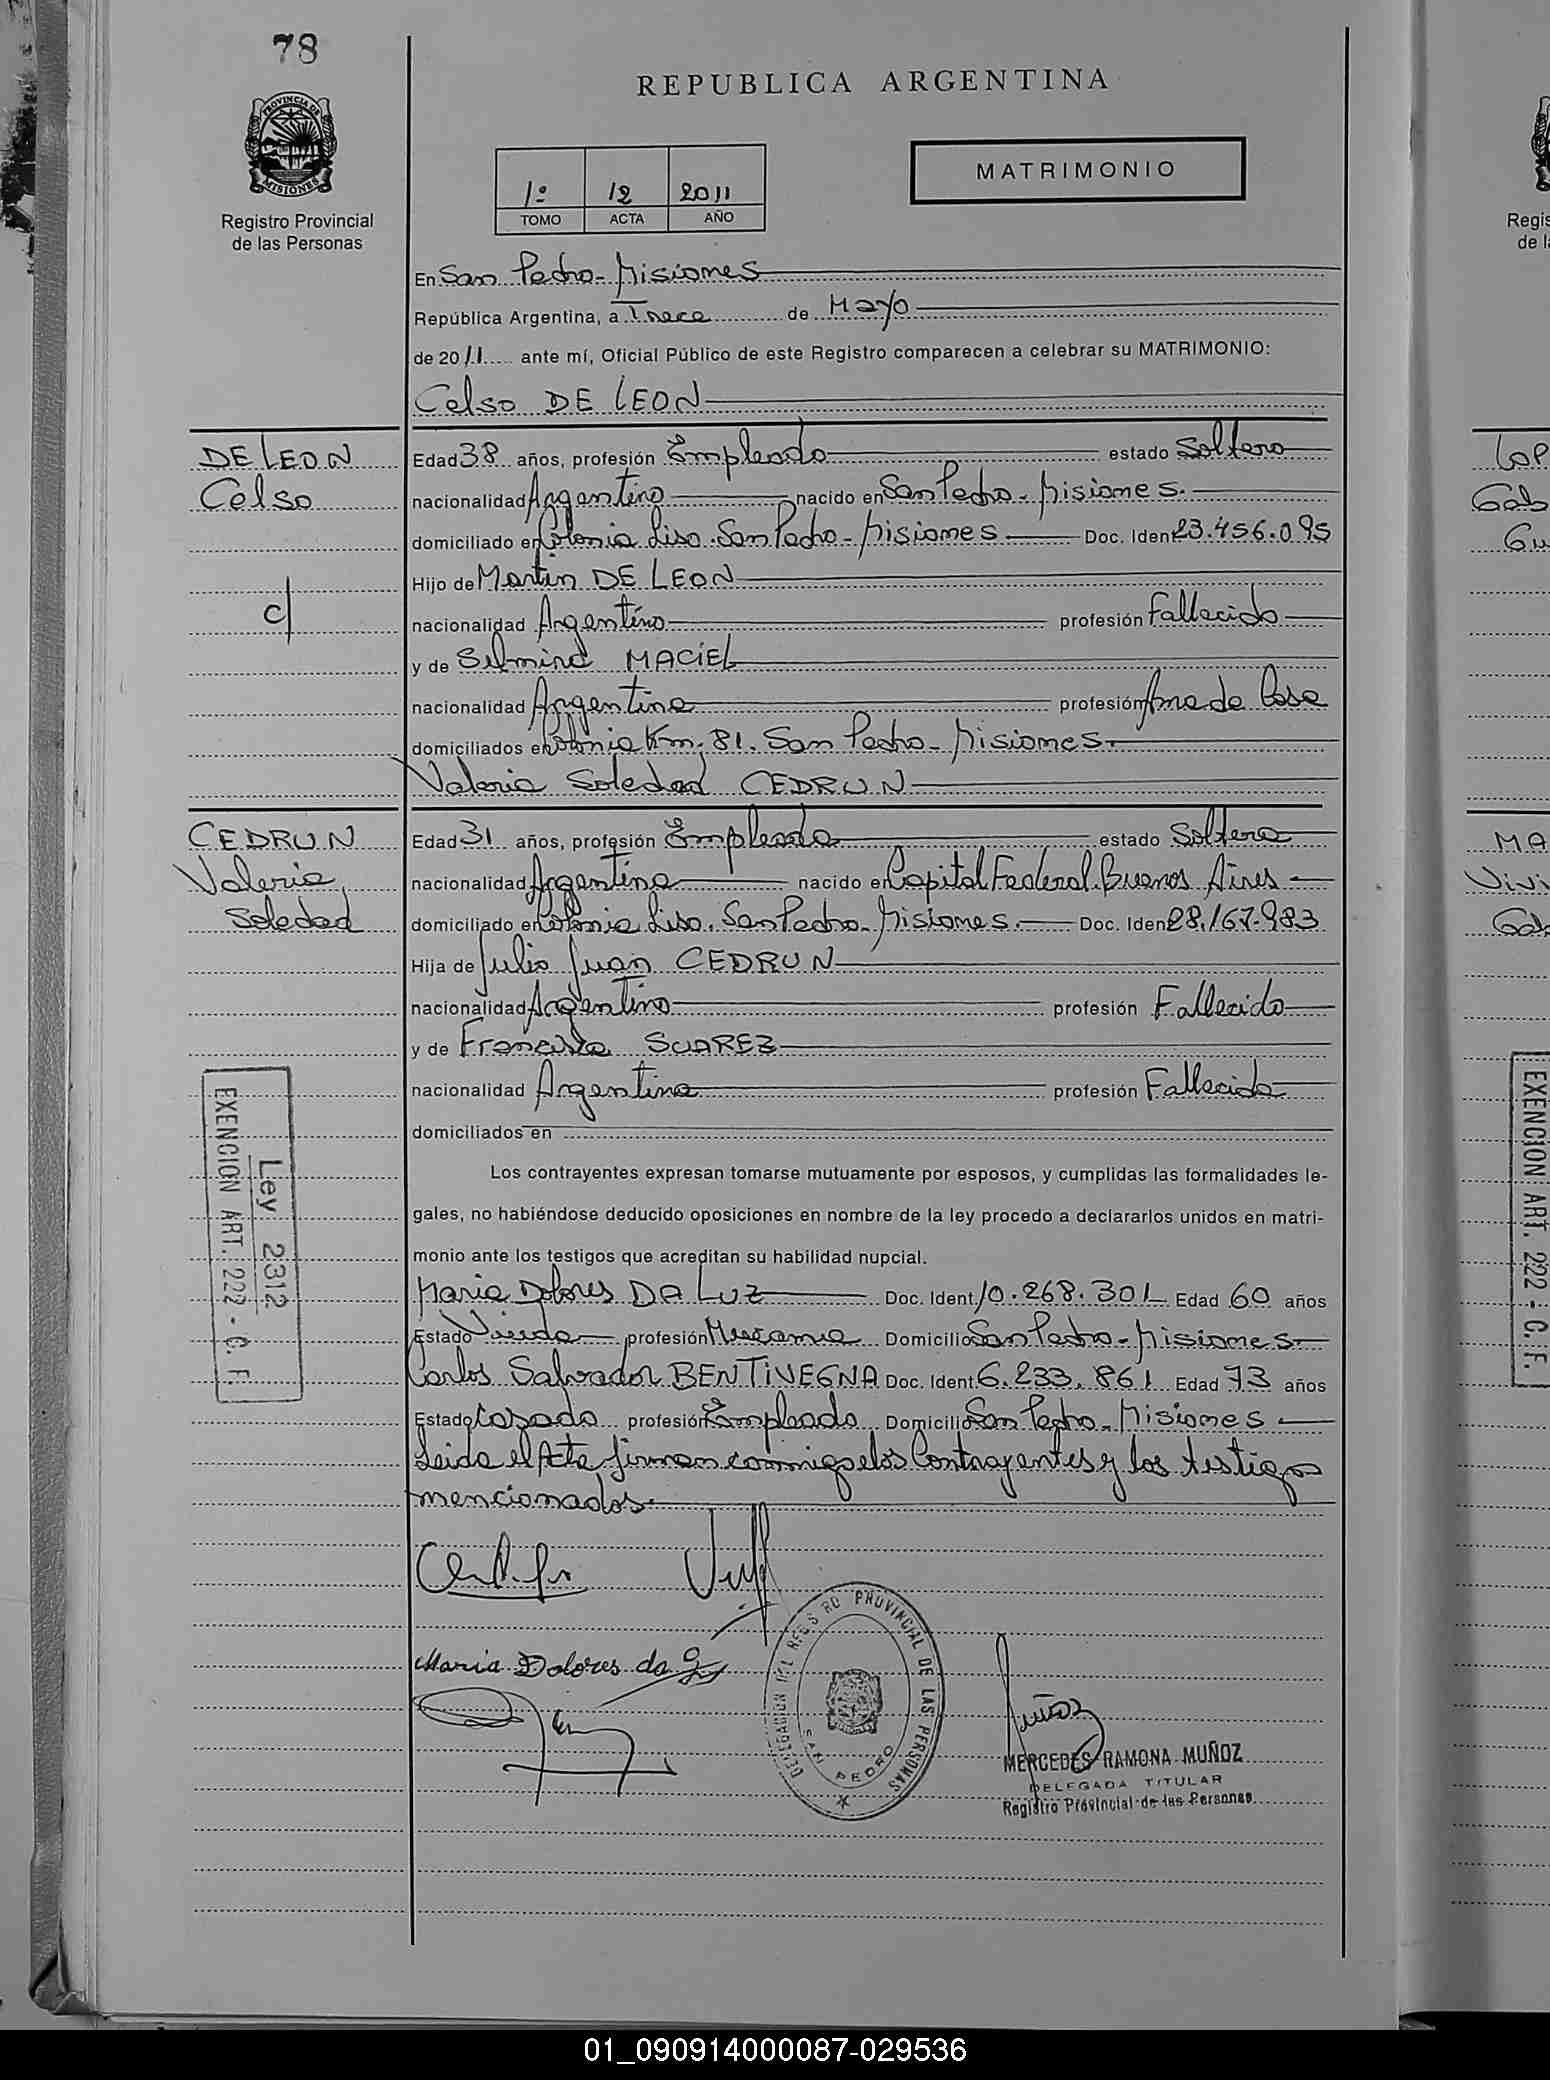 78
REPUBLICA ARGENTINA
PROVINCIA DE
MISIONES
Registro Provincial
de las Personas
MATRIMONIO
1º 12 2011
TOMO ACTA AÑO
En San Pedro - Misiones
República Argentina, a Trece de Mayo
de 2011 ante mí, Oficial Público de este Registro comparecen a celebrar su MATRIMONIO:
Celso DE LEON
DE LEON
Celso
c/
Edad 38 años, profesión Empleado estado Soltero
nacionalidad Argentino nacido en San Pedro - Misiones.
domiciliado en Colonia Liso. San Pedro - Misiones Doc. Iden 23.456.095
Hijo de Martin DE LEON
nacionalidad Argentino profesión Fallecido
y de Selmira MACIEL
nacionalidad Argentina profesión Ama de Casa
domiciliados en Colonia Km. 81. San Pedro - Misiones.
Valeria Soledad CEDRUN
CEDRUN
Valeria
Soledad
Edad 31 años, profesión Empleada estado Soltera
nacionalidad Argentina nacido en Capital Federal. Buenos Aires
domiciliado en Colonia Liso. San Pedro - Misiones. Doc. Iden 28.167.983
Hija de Julio Juan CEDRUN
nacionalidad Argentino profesión Fallecido
y de Francisca SUAREZ
nacionalidad Argentina profesión Fallecida
domiciliados en
Ley 2312
EXENCION ART. 222 - C. F.
Los contrayentes expresan tomarse mutuamente por esposos, y cumplidas las formalidades le-
gales, no habiéndose deducido oposiciones en nombre de la ley procedo a declararlos unidos en matri-
monio ante los testigos que acreditan su habilidad nupcial.
Maria Dolores DA LUZ Doc. Ident. 10.268.301 Edad 60 años
Estado Viuda profesión Domicilio San Pedro - Misiones
Carlos Salvador BENTIVEGNA Doc. Ident. 6.233.861 Edad 73 años
Estado Casado profesión Empleado Domicilio San Pedro - Misiones
Leida el Acta firman conmigo los Contrayentes y los testigos
mencionados.
Maria Dolores da
DELEGACION DEL REGISTRO PROVINCIAL DE LAS PERSONAS
SAN PEDRO
Muñoz
MERCEDES RAMONA MUÑOZ
DELEGADA TITULAR
Registro Provincial de las Personas
Regis
de l
LOP
Gab
Gu
MA
Vivi
Gab
EXENCION ART. 222 - C. F.
01_090914000087-029536